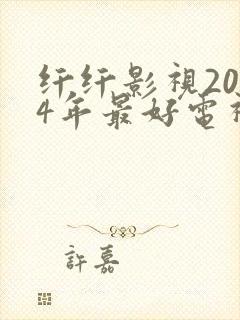 纤纤影視20
4年最好電視
許嘉